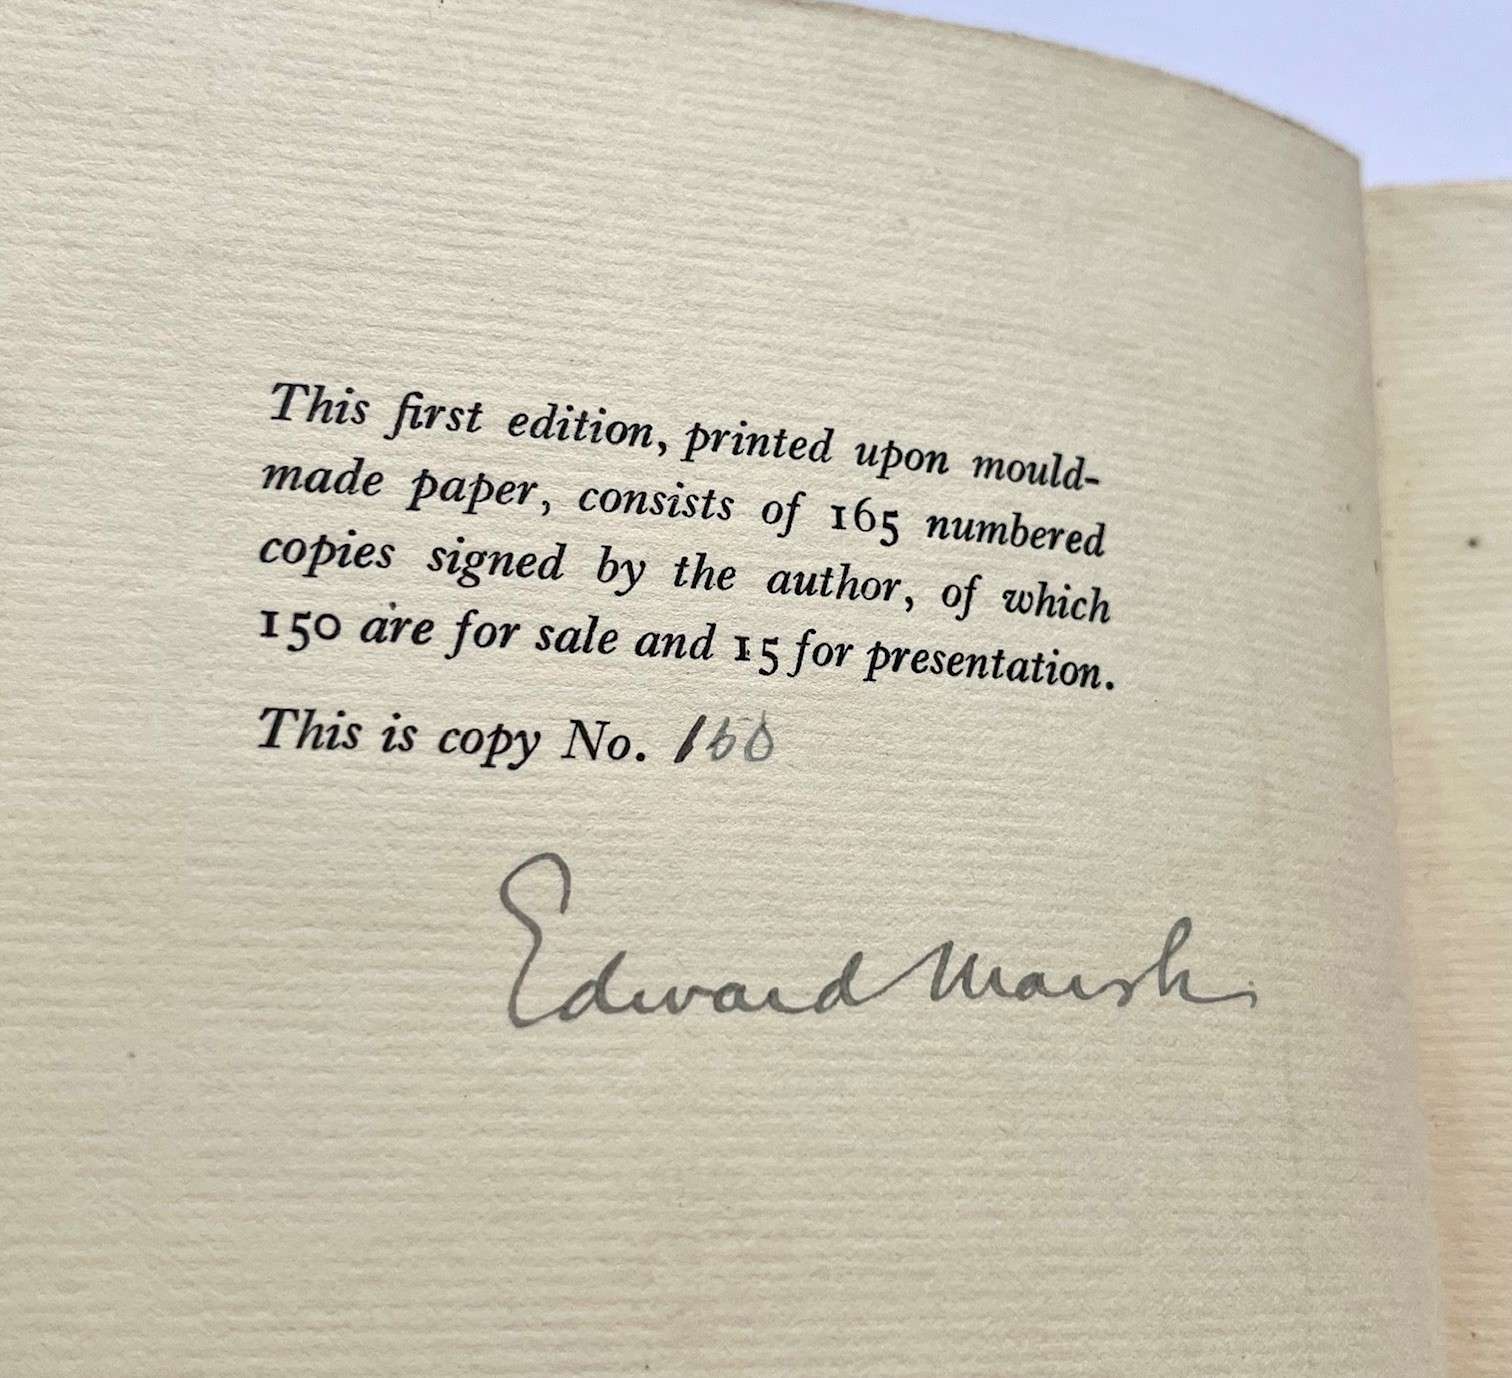 This first edition, printed upon mould-
made paper, consists of 165 numbered
copies signed by the author, of which
150 are for sale and 15 for presentation.
This is copy No. 160
Edward Marsh.